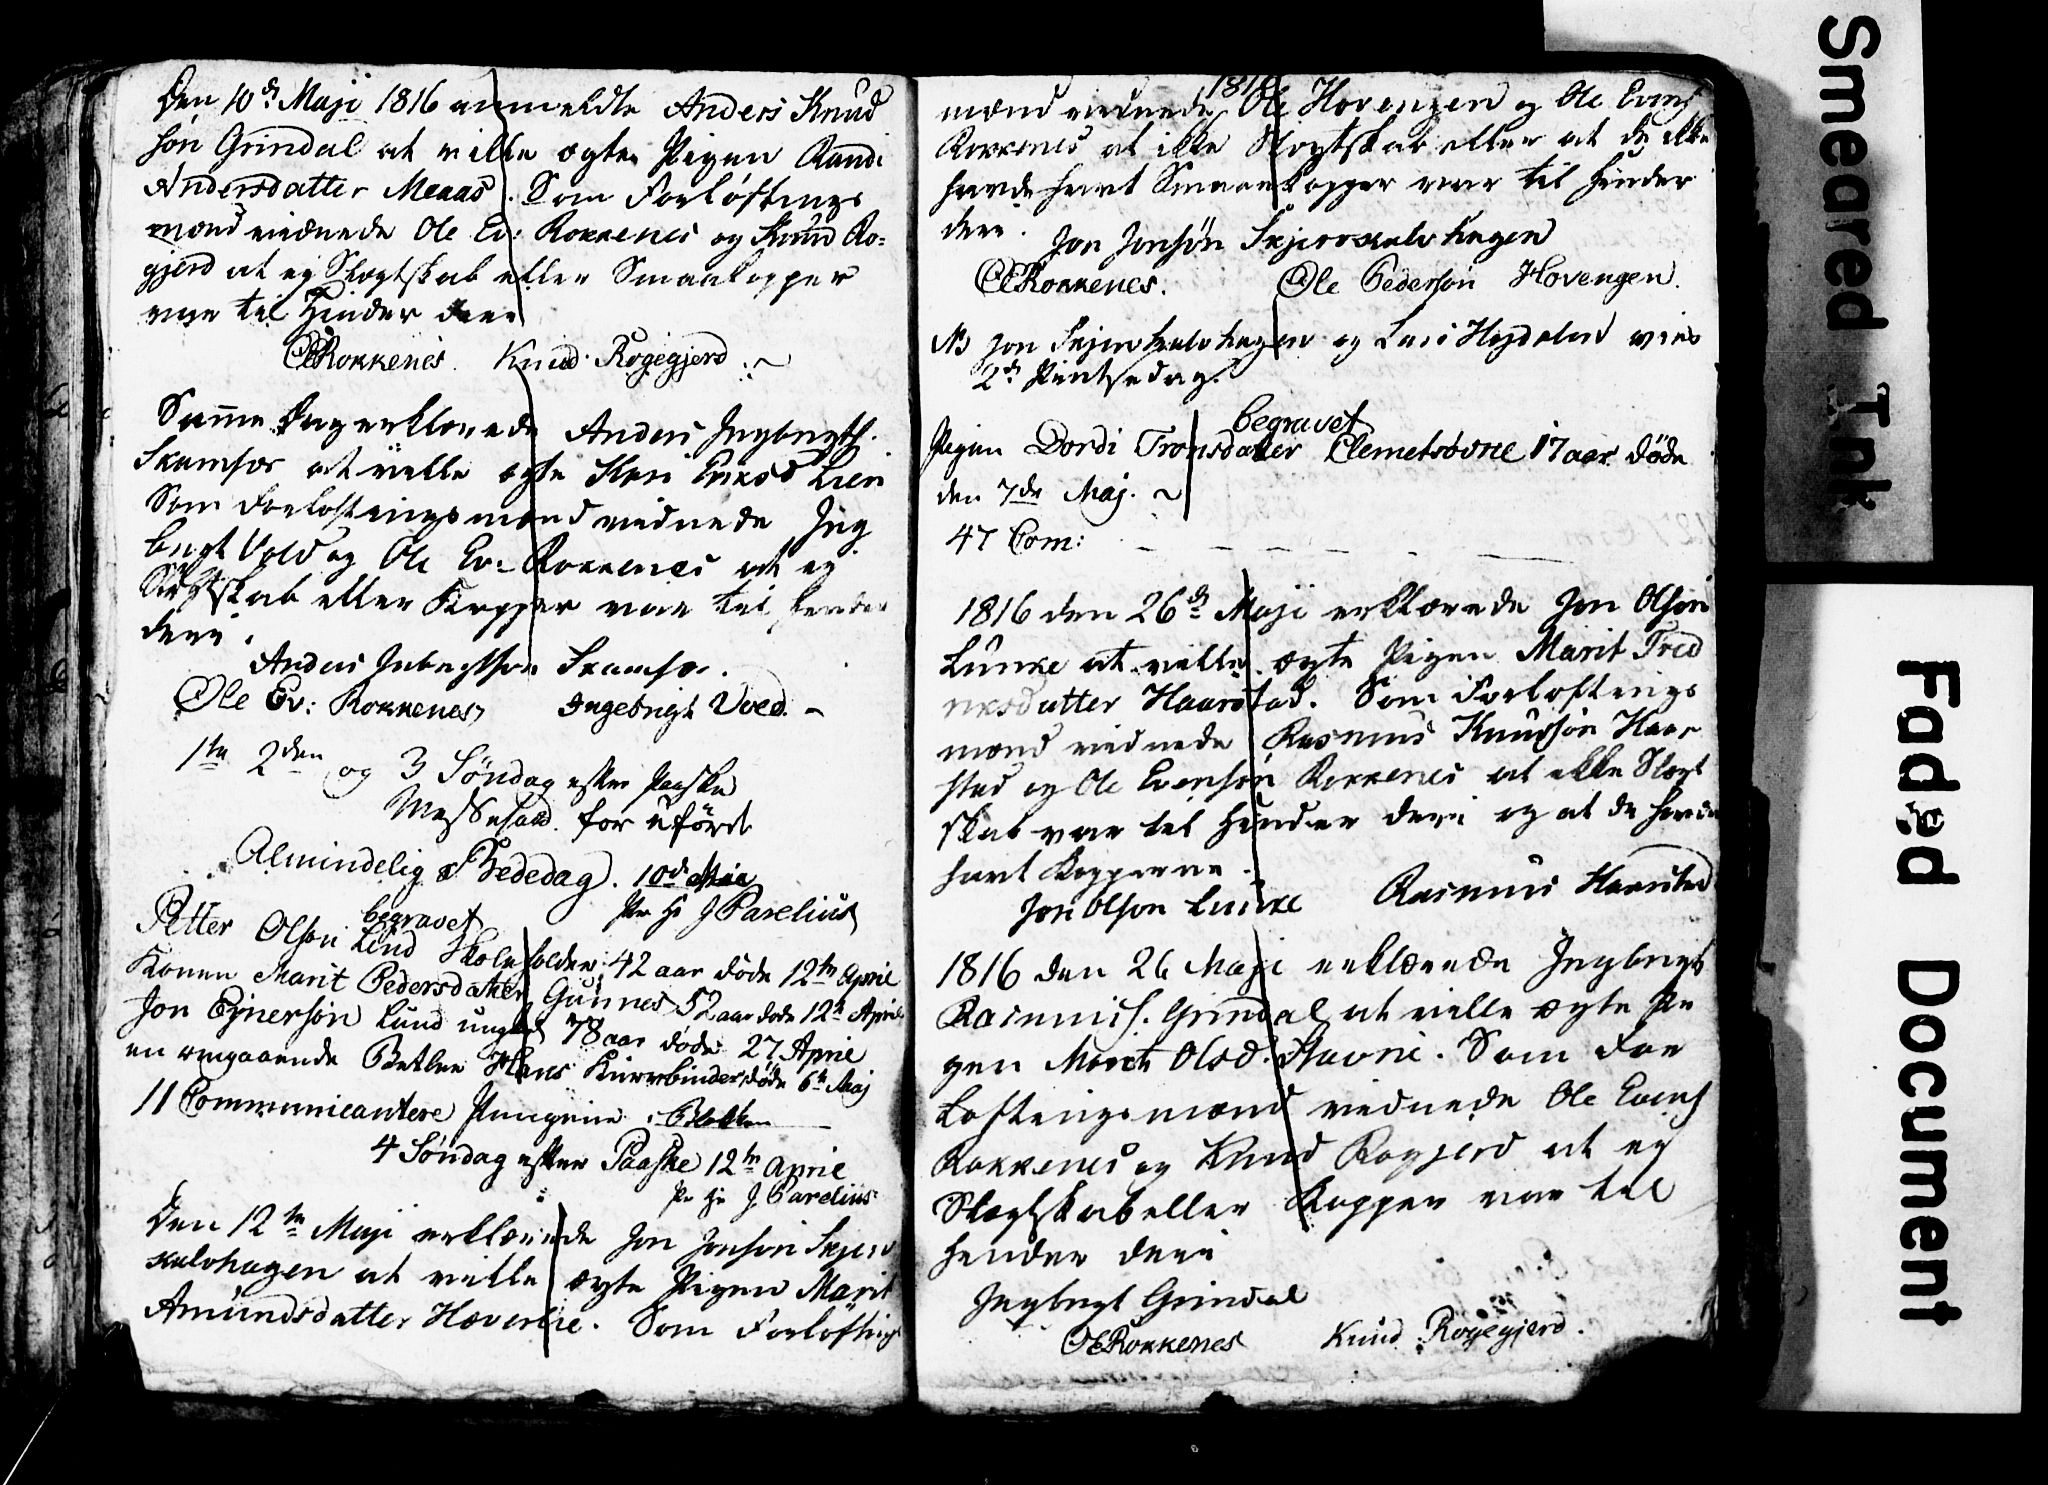 Den 10de Maji 1816 anmeldte Anders Knud
søn Grindal at ville ægte Pigen Randi
Andersdatter Meaas. Som Forløftnings
mænd vidnede Ole Ev: Rokkenes og Knud Ro=
gjerd at ey Slægtskab eller Smaakopper
var til Hinder deri
OERokkenes. Knud Rogegjerd
Samme Dag erklærede Anders Ingbrigts.
Skamfer at ville ægte Kari Eriksd Lien
Som Forloftningsmænd vidnede Ing
brigt Vold og Ole Ev: Rokkenes at ey
Slægtskab eller Kopper var til hinder
deri.
Anders Inbrigtson Skamfer.
Ole Ev: Rokkenes Ingebrigt Voed.
1te 2den og 3 Søndag efter Paaske
Messefald for uføret
Almindelig Bededag. 10de Maii
Pr Hr J Parelius
begravet
Petter Olson Lind Skoleholder 42 aar døde 12te April
Konen Marit Pedersdatter Gunnes 52 aar døde 12te April
Jon Ejnersøn Lund ungkarl 78 aar døde 27 April
en omgaaende Betler Hans Kurvbinder døde 6te Maj
11 Communicantere
4 Søndag efter Paaske 12te April
Pr Hr J. Parelius
Den 12te Maji erklærede Jon Jonsøn Skjerv
kalvhagen at ville ægte Pigen Marit
Amundsdatter Hæverlie. Som Forløftnings
1816
mænd vidnede Ole Hovengen og Ole Evens
Rokkenes at ikke Slægtskab eller at de ikke
havde havt Smaaekopper var til hinder
deri.
Jon Jonsøn Skjervskalvhagen
OERokkenes. Ole Pedersøn Hovengen.
NB Jon Skjervkalvhagen og Lars Hogdalen vies
2den Pintsedag.
begravet
Pigen Dordi Tronsdatter Clemetsøvne 17 aar døde
den 7de Maj.
47 Com:
1816 den 26de Maji erklærede Jon Olson
Lunke at ville ægte Pigen Marit Fred
riksdatter Haarstad. Som Forloftnings
mænd vidnede Rasmus Knudsøn Haar
stad og Ole Evensøn Rokkenes at ikke Slægt
skab var til Hinder deri og at de havde
havt Kopperne.
Jon Olson Lunke Rasmus Haarstad
1816 den 26 Maji erklærede Ingbrigt
Rasmuss. Grindal at ville ægte Pi
gen Marit Olsd. Stavne. Som For
loftningsmænd vidnede Ole Evens
Rokkenes og Knud Rogjerd at ey
Slægtskab eller Kopper var til
hinder deri
Ingbrigt Grindal
OERokkenes Knud Rogegjerd.
Smeared Ink
Faded Document